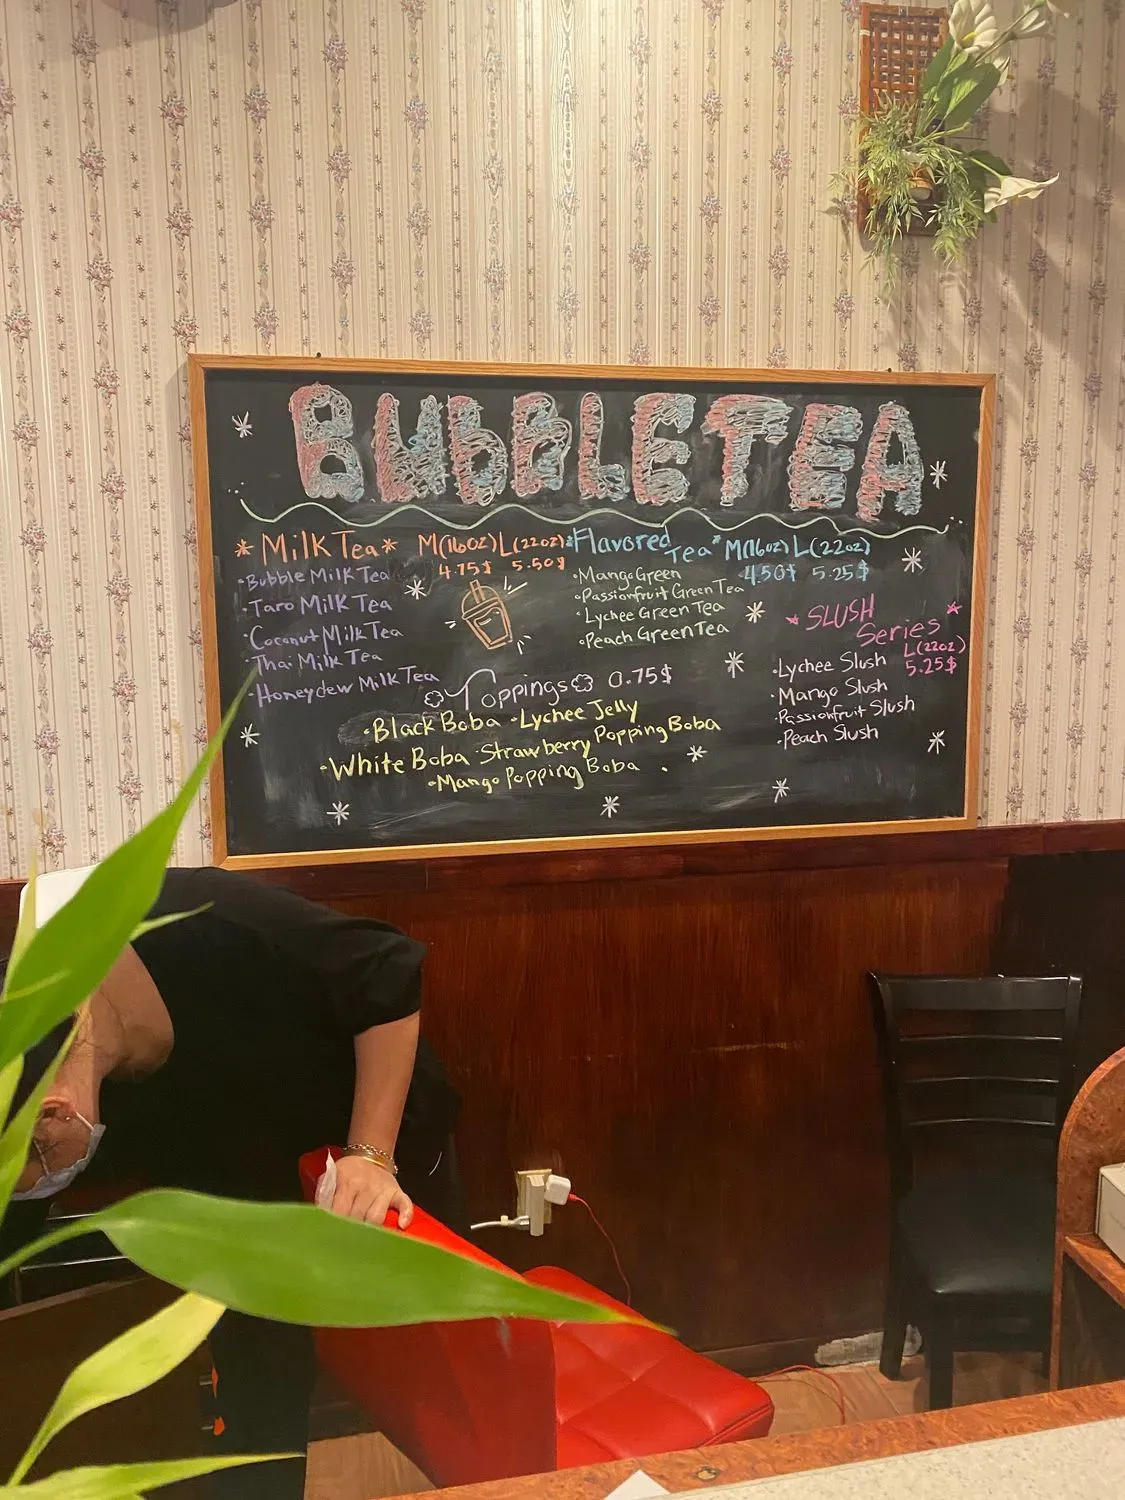 BUBBLE TEA
*Milk Tea* M(16oz) L(22oz)
4.75$ 5.50$
•Bubble Milk Tea
•Taro Milk Tea
•Coconut Milk Tea
•Thai Milk Tea
•Honeydew Milk Tea
*Flavored Tea* M(16oz) L(22oz)
4.50$ 5.25$
•Mango Green
•Passionfruit Green Tea
•Lychee Green Tea
•Peach Green Tea
*SLUSH *
Series
L(22oz)
5.25$
•Lychee Slush
•Mango Slush
•Passionfruit Slush
•Peach Slush
Toppings 0.75$
•Black Boba •Lychee Jelly
•White Boba •Strawberry Popping Boba
•Mango Popping Boba